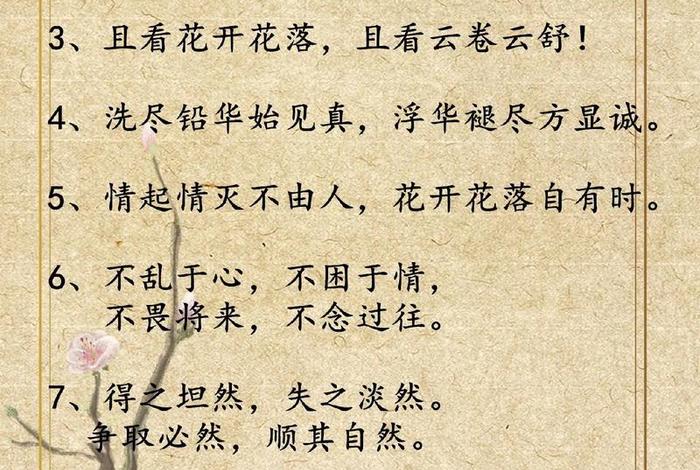 3、且看花开花落，且看云卷云舒！
4、洗尽铅华始见真，浮华褪尽方显诚。
5、情起情灭不由人，花开花落自有时。
6、不乱于心，不困于情，
不畏将来，不念过往。
7、得之坦然，失之淡然。
争取必然，顺其自然。